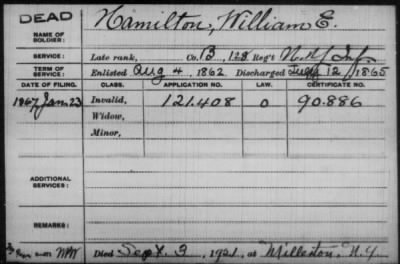 DEAD
Hamilton, William E.
NAME OF SOLDIER:
SERVICE: Late rank, Co. B, 128 Reg't N.Y. Inf
TERM OF SERVICE: Enlisted Aug 4, 1862 Discharged July 12, 1865
DATE OF FILING. CLASS. APPLICATION NO. LAW. CERTIFICATE NO.
1867, Jan. 23 Invalid, 121.408 O 90.886
Widow,
Minor,
ADDITIONAL SERVICES:
REMARKS:
Died Sept. 3, 1921, at Millerton, N.Y.